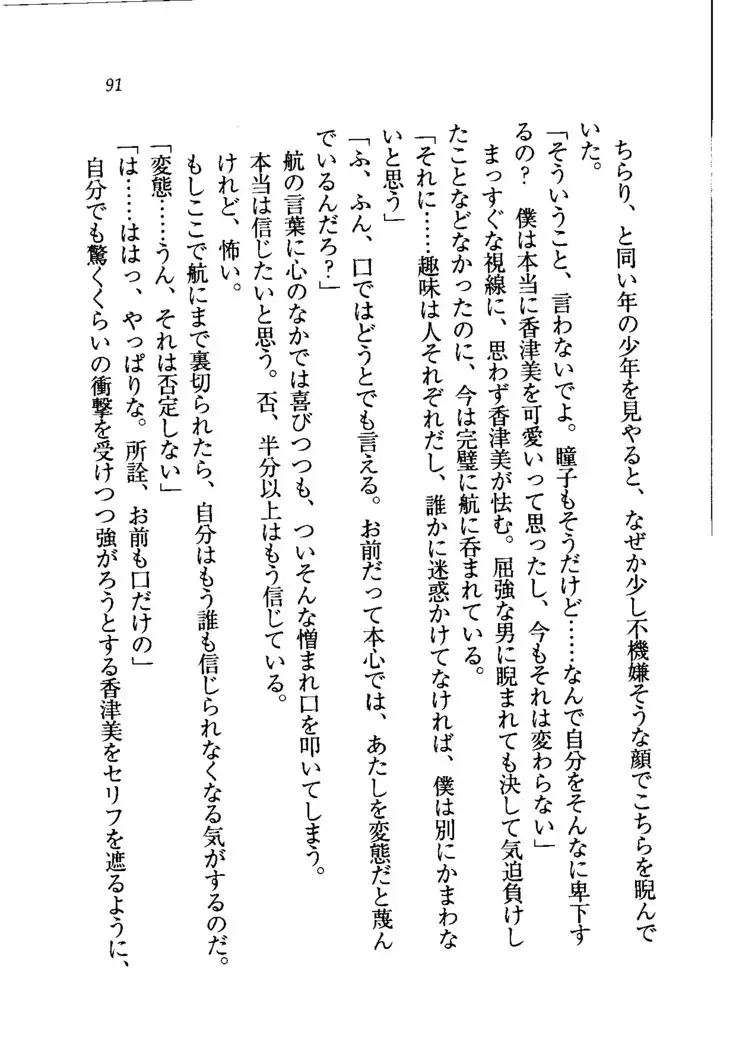 91
ちらり、と同い年の少年を見やると、なぜか少し不機嫌そうな顔でこちらを睨んで
いた。
「そういうこと、言わないでよ。瞳子もそうだけど……なんで自分をそんなに卑下す
るの？　僕は本当に香津美を可愛いって思ったし、今もそれは変わらない」
まっすぐな視線に、思わず香津美が怯む。屈強な男に睨まれても決して気迫負けし
たことなどなかったのに、今は完璧に航に呑まれている。
「それに……趣味は人それぞれだし、誰かに迷惑かけてなければ、僕は別にかまわな
いと思う」
「ふ、ふん、口ではどうとでも言える。お前だって本心では、あたしを変態だと蔑ん
でいるんだろ？」
航の言葉に心のなかでは喜びつつも、ついそんな憎まれ口を叩いてしまう。
本当は信じたいと思う。否、半分以上はもう信じている。
けれど、怖い。
もしここで航にまで裏切られたら、自分はもう誰も信じられなくなる気がするのだ。
「変態……うん、それは否定しない」
「は……ははっ、やっぱりな。所詮、お前も口だけの」
自分でも驚くくらいの衝撃を受けつつ強がろうとする香津美をセリフを遮るように、